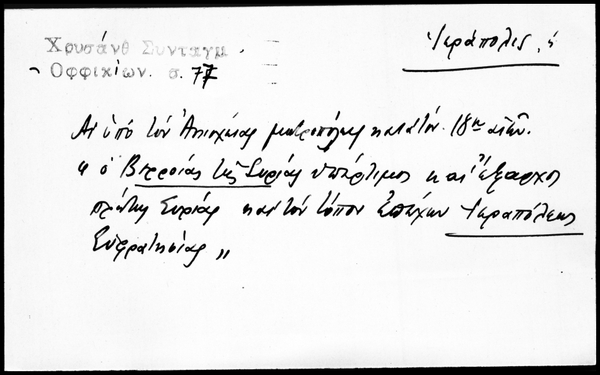 Χρυσάνθ Συνταγμ
Οφφικίων. σ. 77
Ἱεράπολις, ἡ
Αἱ ὑπὸ τὸν Ἀντιοχείας μητροπόλεις κατὰ τὸν 18ον αἰῶν.
"ὁ Βερροίας τῆς Συρίας ὑπέρτιμος καὶ ἔξαρχος
πρώτης Συρίας καὶ τὸν τόπον ἐπέχων Ἱεραπόλεως
Εὐφρατησίας"